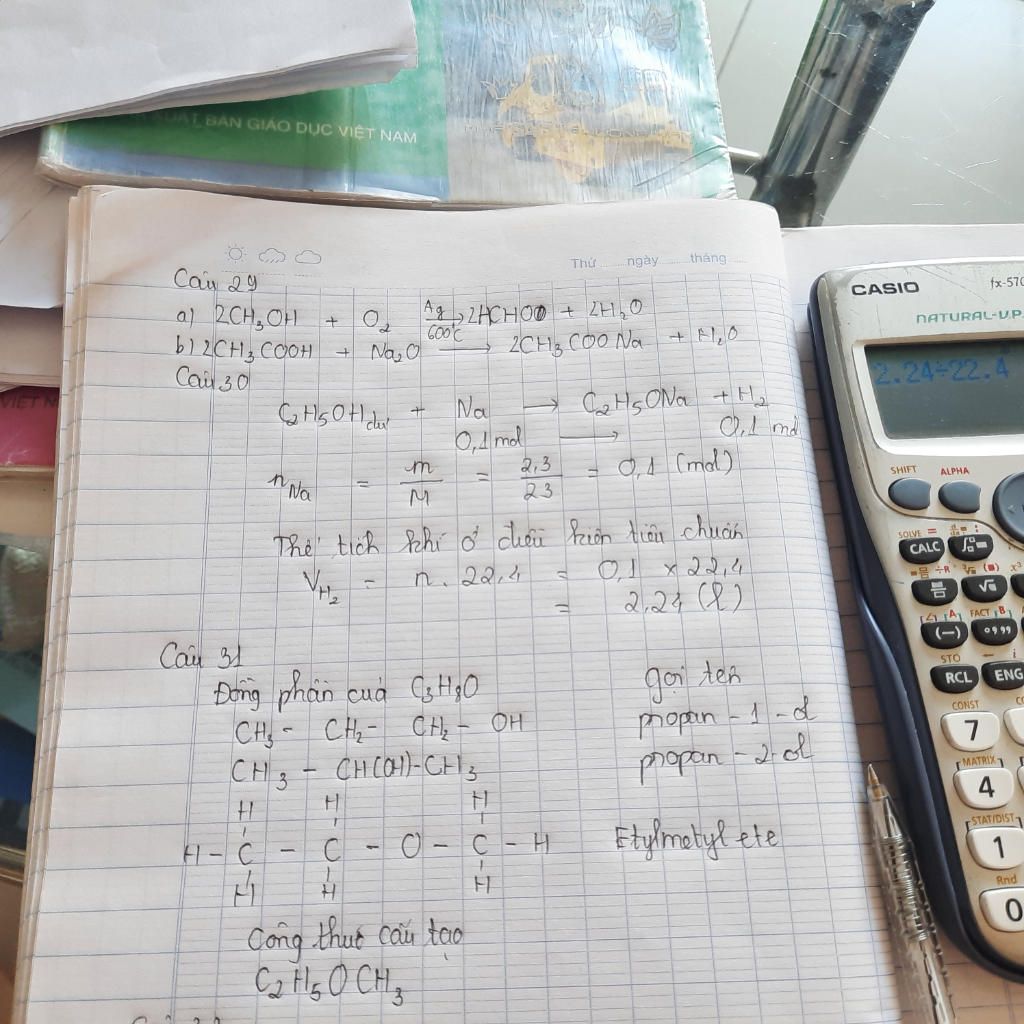 XUẤT BẢN GIÁO DỤC VIỆT NAM
Thứ ngày tháng
Câu 29
a) 2CH₃OH + O₂ Ag 600°C → 2HCHO + 2H₂O
b) 2CH₃COOH + Na₂O → 2CH₃COONa + H₂O
Câu 30
C₂H₅OH dư + Na → C₂H₅ONa + H₂
0,1 mol → 0,1 mol
nNa = m/M = 2,3/23 = 0,1 (mol)
Thể tích khí ở điều kiện tiêu chuẩn
VH₂ = n. 22,4 = 0,1 × 22,4
= 2,24 (l)
Câu 31
Đồng phân của C₃H₈O gọi tên
CH₃ - CH₂ - CH₂ - OH propan - 1 - ol
CH₃ - CH(OH)-CH₃ propan - 2 - ol
H H H
H - C - C - O - C - H Etylmetyl ete
H H H
Công thức cấu tạo
C₂H₅OCH₃
VIỆT N
CASIO fx-570
NATURAL-V.P.
2.24÷22.4
SHIFT ALPHA
SOLVE =
CALC
STO
RCL ENG
CONST
7
MATRIX
4
STAT/DIST
1
Rnd
0